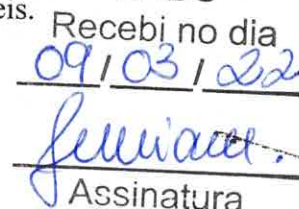 eis.
Recebi no dia
09 / 03 / 22
Assinatura